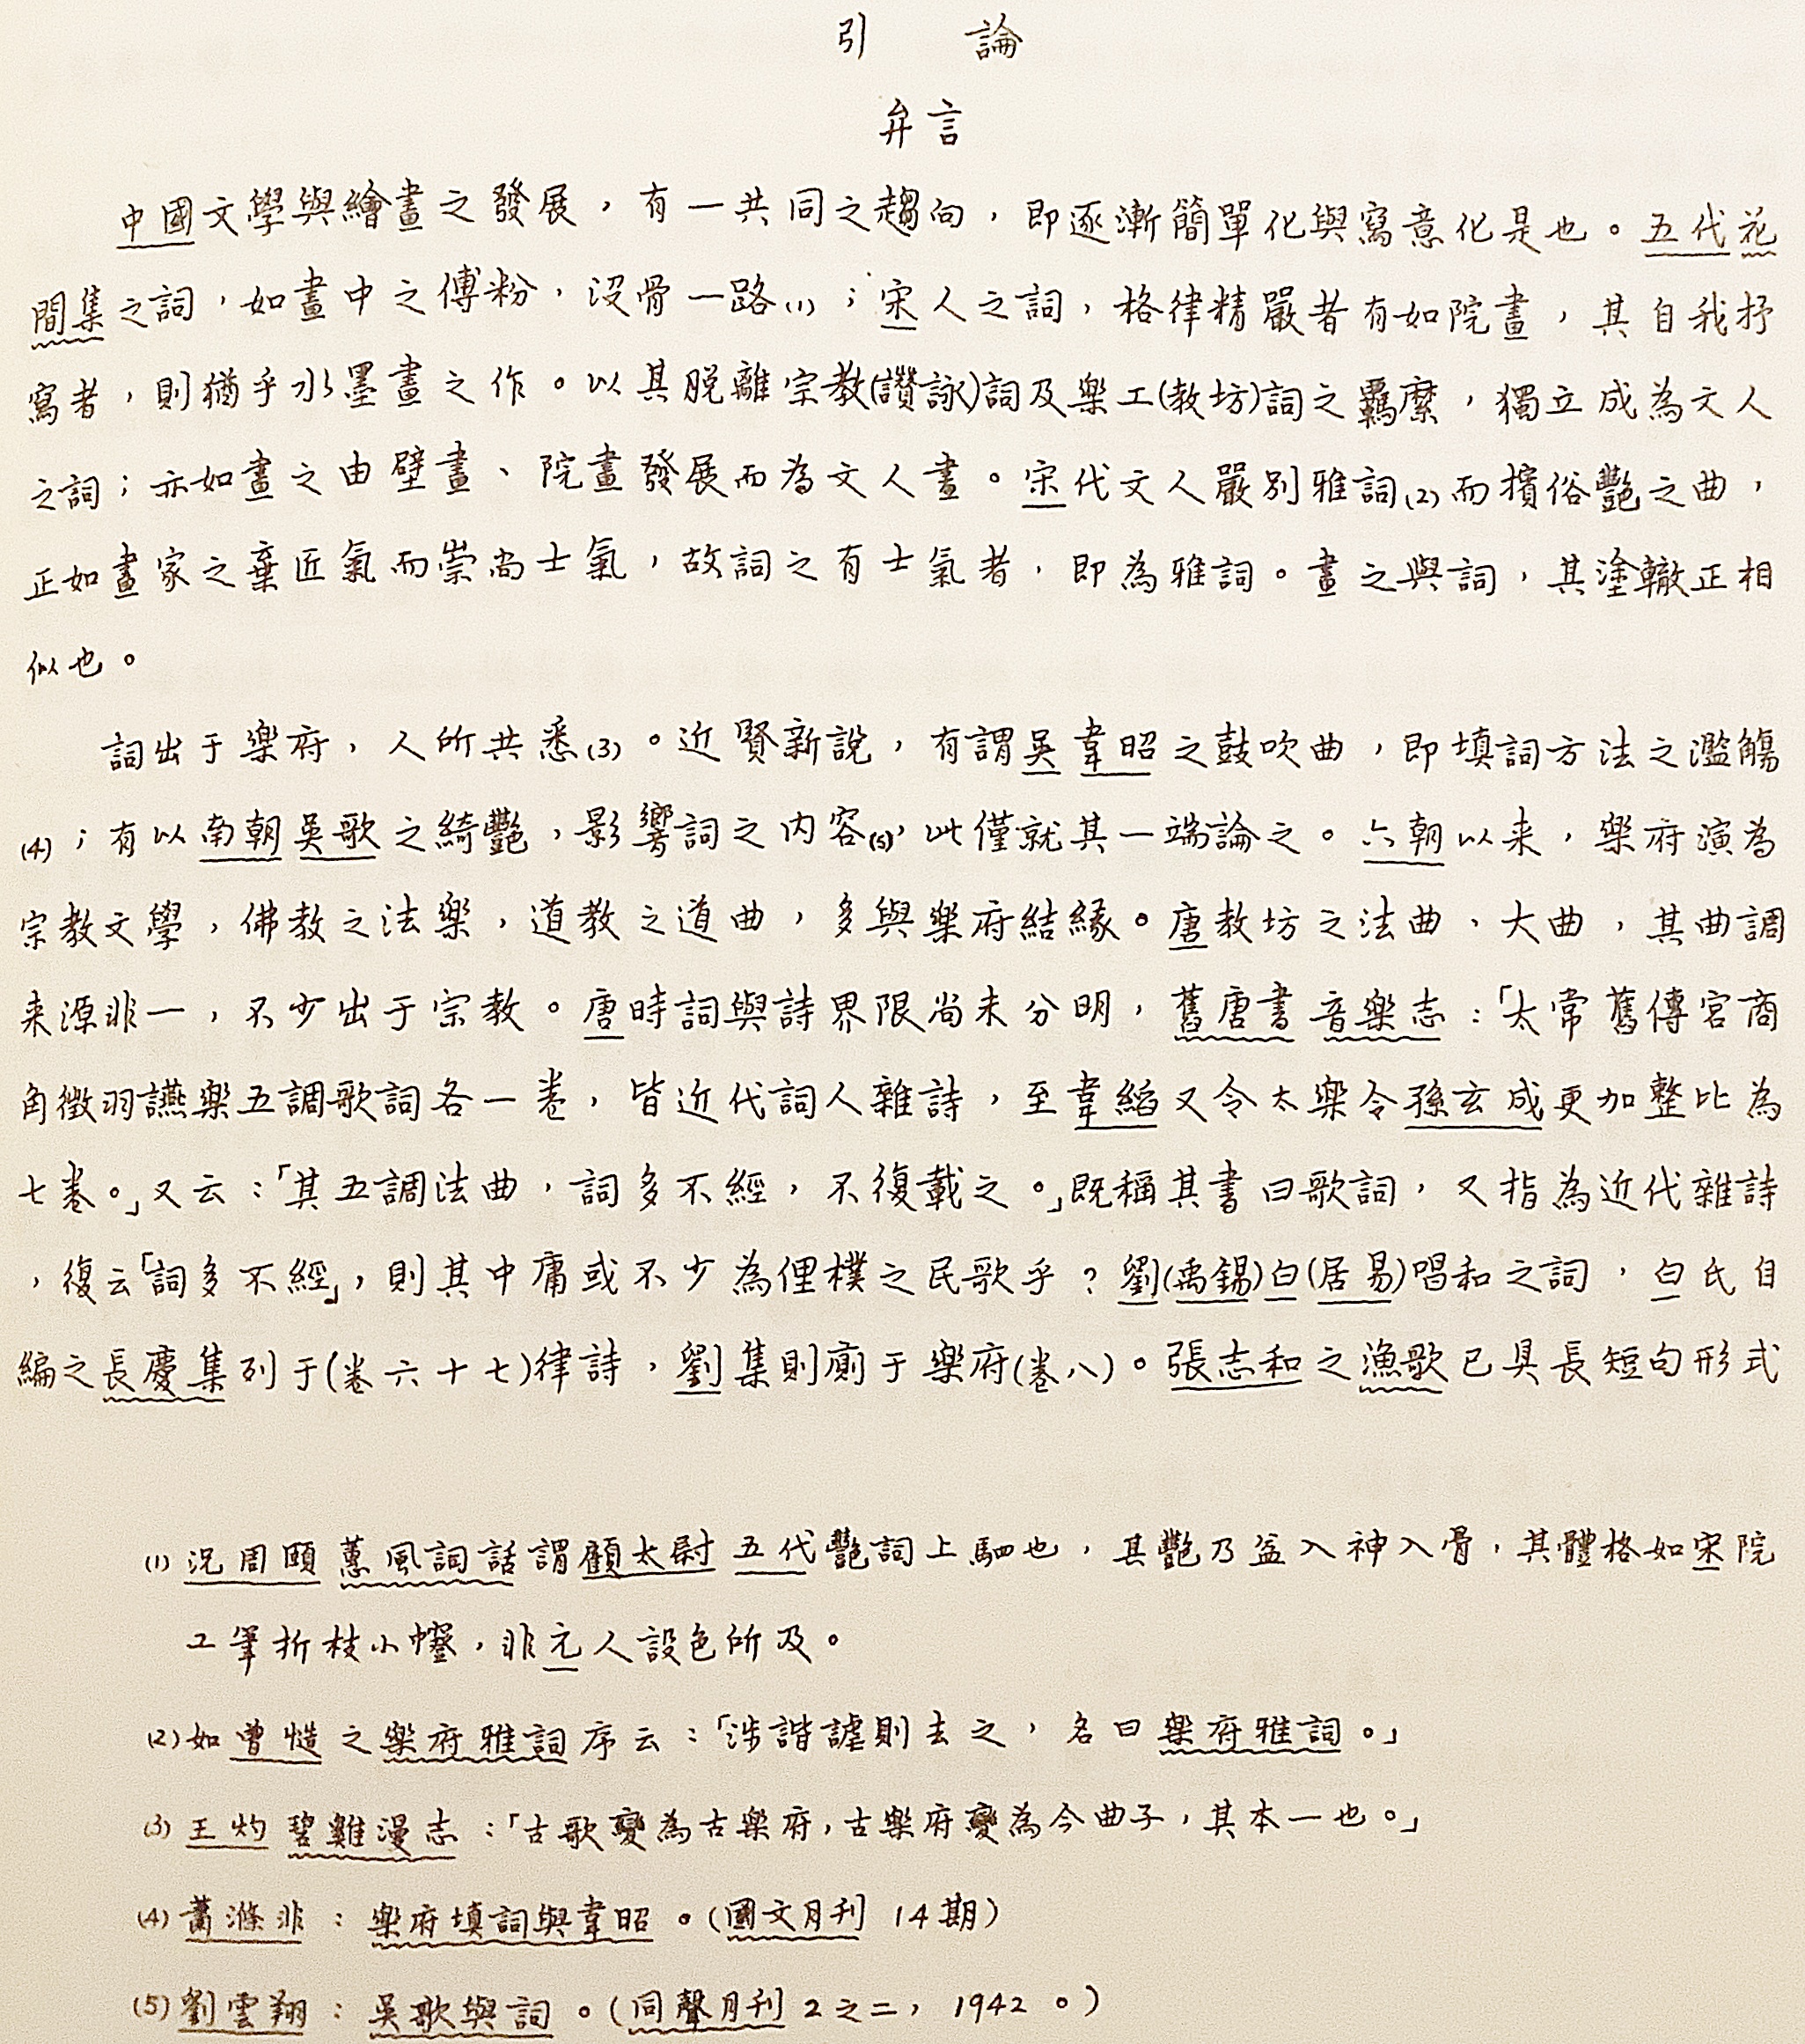 引論
弁言
中國文學與繪畫之發展，有一共同之趨向，即逐漸簡單化與寫意化是也。五代花
間集之詞，如畫中之傅粉，沒骨一路(1)；宋人之詞，格律精嚴者有如院畫，其自我抒
寫者，則猶乎水墨畫之作。以其脱離宗教(讚詠)詞及樂工(教坊)詞之羈縻，獨立成為文人
之詞；亦如畫之由壁畫、院畫發展而為文人畫。宋代文人嚴別雅詞(2)而擯俗艷之曲，
正如畫家之棄匠氣而崇尚士氣，故詞之有士氣者，即為雅詞。畫之與詞，其塗轍正相
似也。
詞出于樂府，人所共悉(3)。近賢新說，有謂吳韋昭之鼓吹曲，即填詞方法之濫觴
(4)；有以南朝吳歌之綺艷，影響詞之內容(5)，此僅就其一端論之。六朝以来，樂府演為
宗教文學，佛教之法樂，道教之道曲，多與樂府結緣。唐教坊之法曲、大曲，其曲調
来源非一，不少出于宗教。唐時詞與詩界限尚未分明，舊唐書音樂志：「太常舊傳宮商
角徵羽讌樂五調歌詞各一卷，皆近代詞人雜詩，至韋縚又令太樂令孫玄成更加整比為
七卷。」又云：「其五調法曲，詞多不經，不復載之。」既稱其書曰歌詞，又指為近代雜詩
，復云「詞多不經」，則其中庸或不少為俚樸之民歌乎？劉(禹錫)白(居易)唱和之詞，白氏自
編之長慶集列于(卷六十七)律詩，劉集則廁于樂府(卷八)。張志和之漁歌已具長短句形式
(1)況周頤蕙風詞話謂顧太尉五代艷詞上駟也，其艷乃益入神入骨，其體格如宋院
工筆折枝小幢，非元人設色所及。
(2)如曾慥之樂府雅詞序云：「涉諧謔則去之，名曰樂府雅詞。」
(3)王灼碧雞漫志：「古歌變為古樂府，古樂府變為今曲子，其本一也。」
(4)蕭滌非：樂府填詞與韋昭。(國文月刊 14期)
(5)劉雲翔：吳歌與詞。(同聲月刊 2之二，1942。)